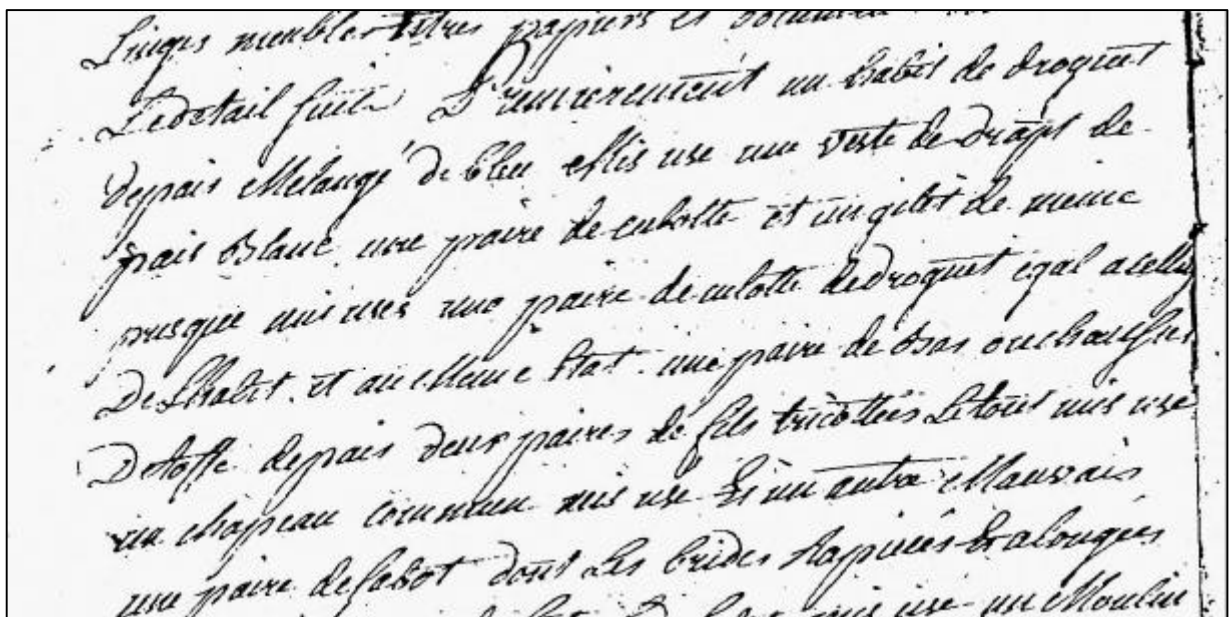 Linges meubles titres papiers et documen
Le detail suit. Premierement un habit de droguet
depais Melangé de bleu Mis use une veste de draps de
pais Blanc une paire de culotte et un gilet de meme
presque mis uses une paire de culotte de droguet egal a celluy
De Lhabit. et au Meme Etat. une paire de Bas ou chausses
Detoffe depais deux paires de fils tricottées Le tout mis use
un chapeau commun mis use Et un autre Mauvais
une paire de sabot dont Les brides
mis use un Moulin